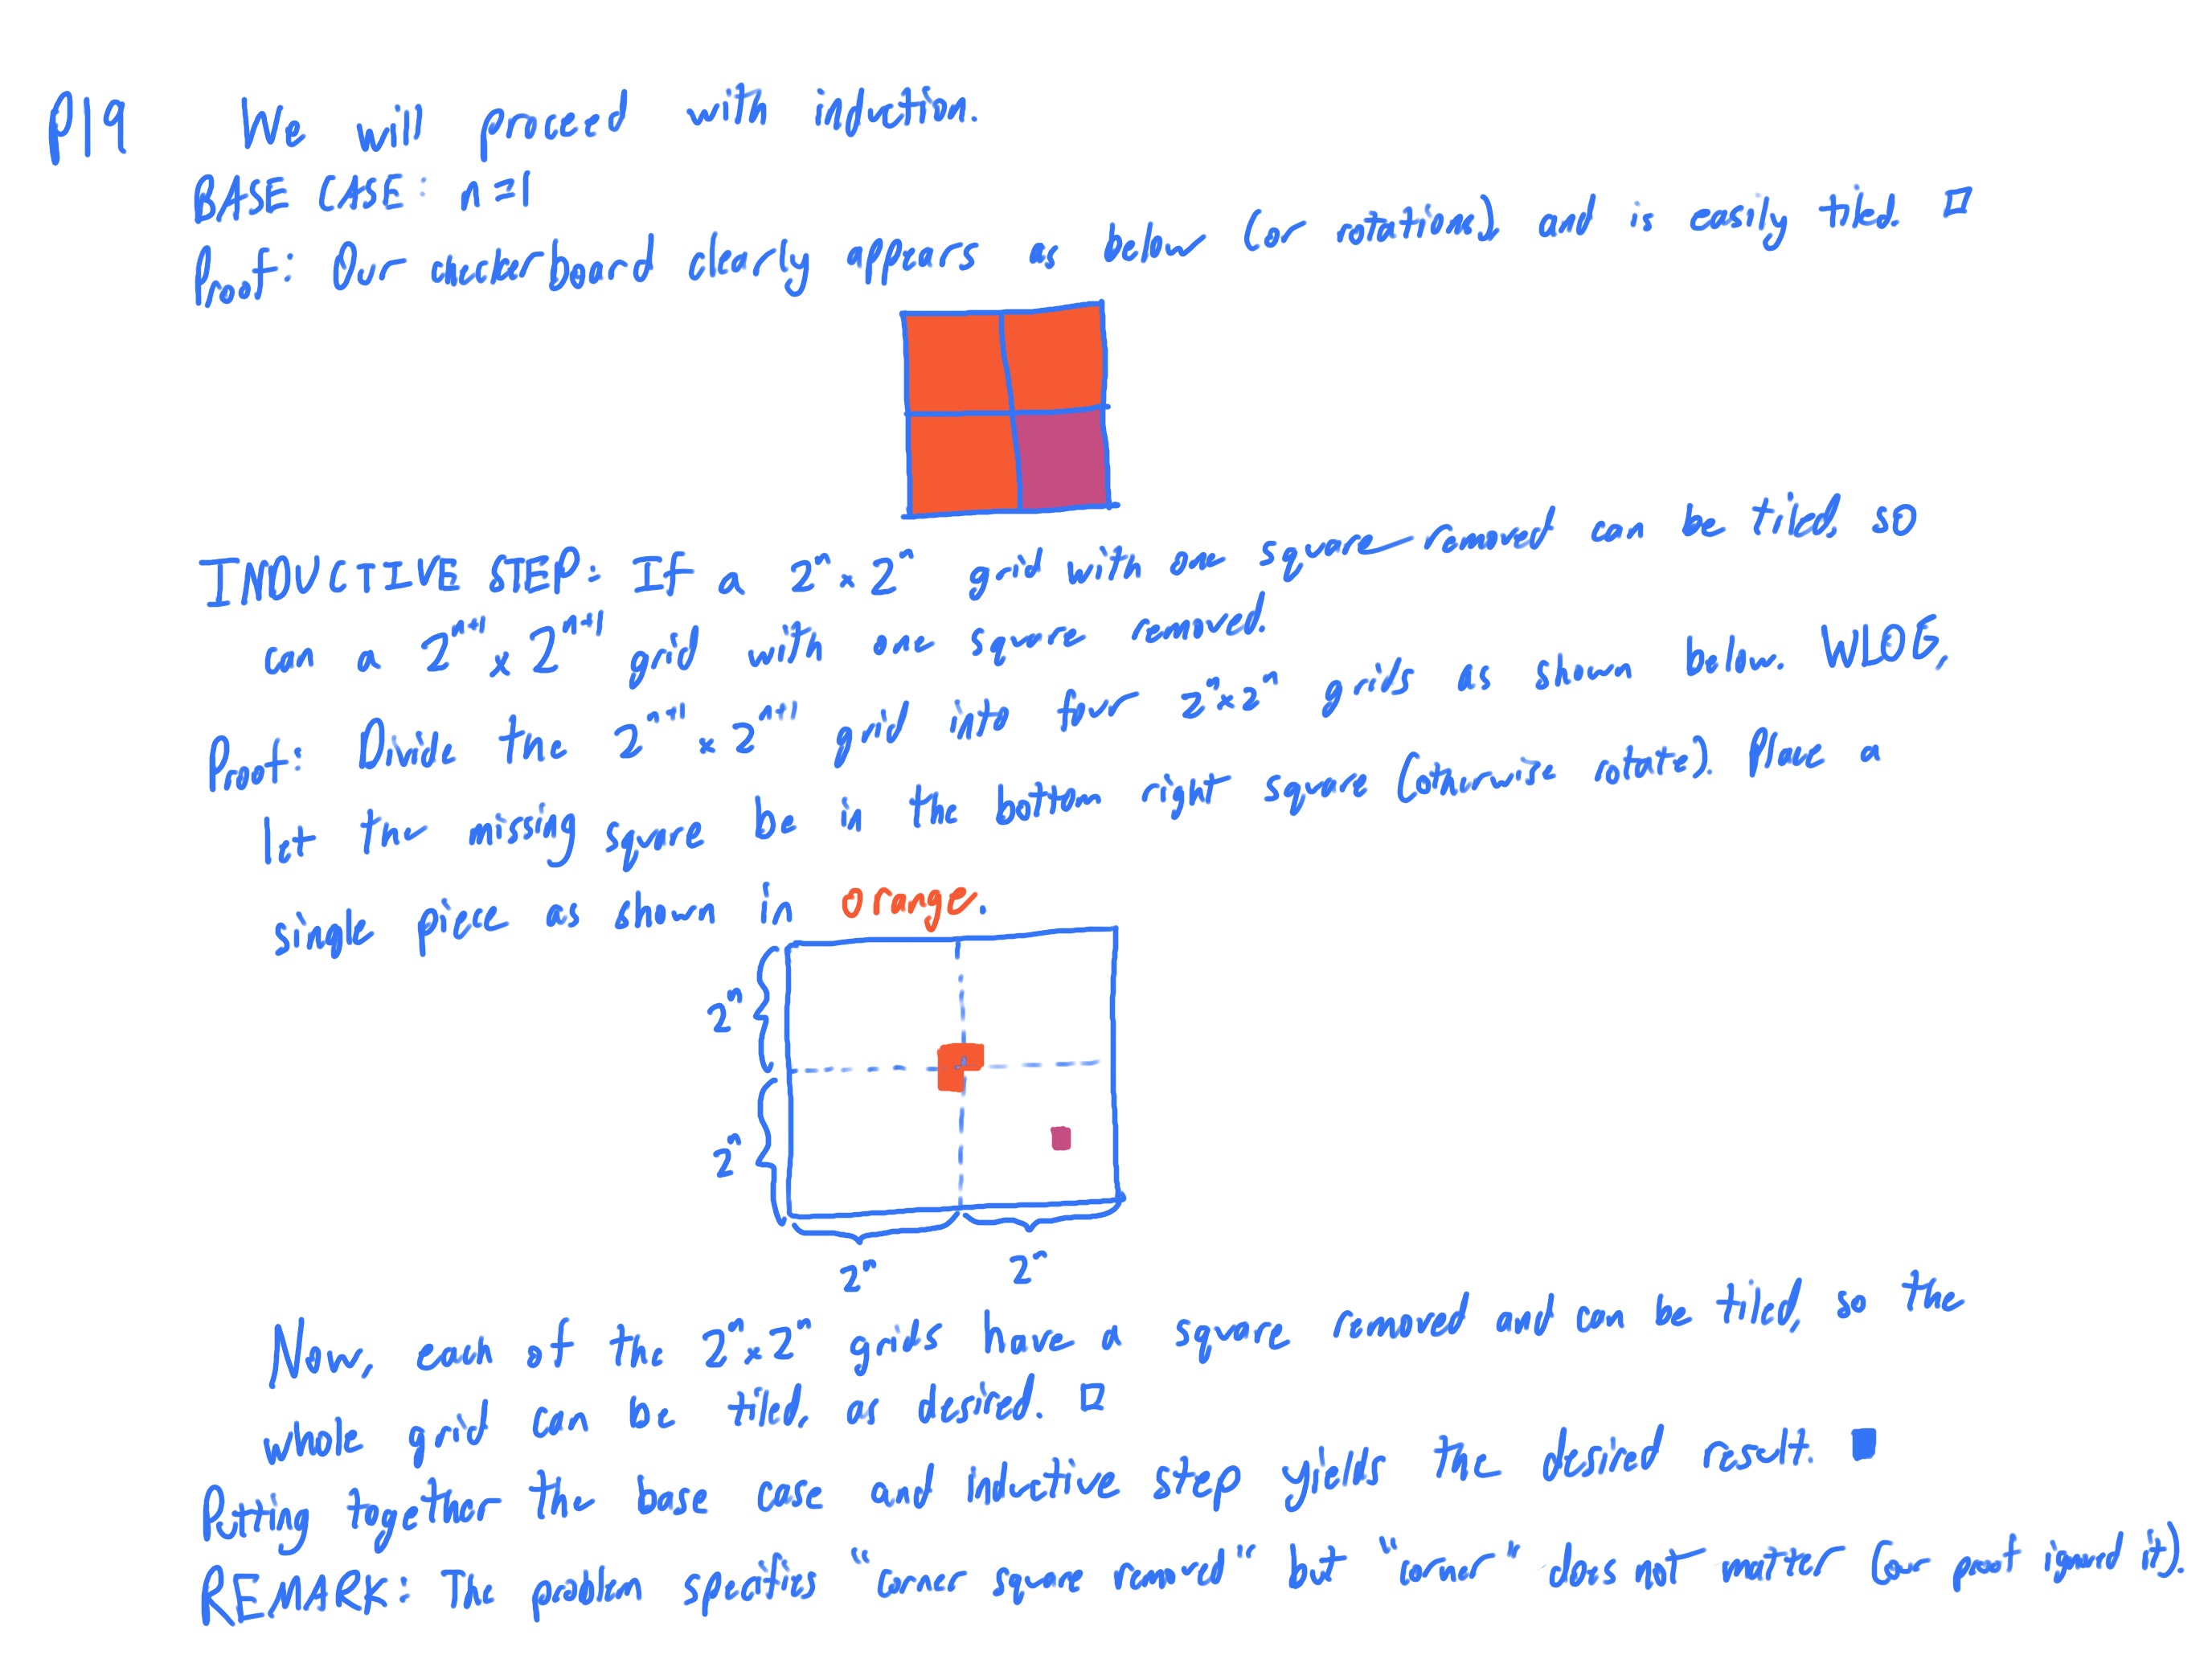 P19 We will proceed with induction.
BASE CASE: n=1
Proof: Our checkerboard clearly appears as below (or rotations) and is easily tiled. □
INDUCTIVE STEP: If a 2ⁿ × 2ⁿ grid with one square removed can be tiled, so
can a 2ⁿ⁺¹ × 2ⁿ⁺¹ grid with one square removed.
Proof: Divide the 2ⁿ⁺¹ × 2ⁿ⁺¹ grid into four 2ⁿ × 2ⁿ grids as shown below. WLOG,
let the missing square be in the bottom right square (otherwise rotate). Place a
single piece as shown in orange.
2ⁿ
2ⁿ
2ⁿ 2ⁿ
Now, each of the 2ⁿ × 2ⁿ grids have a square removed and can be tiled, so the
whole grid can be tiled, as desired. □
Putting together the base case and inductive step yields the desired result. ■
REMARK: The problem specifies "corner square removed" but "corner" does not matter (our proof ignored it).